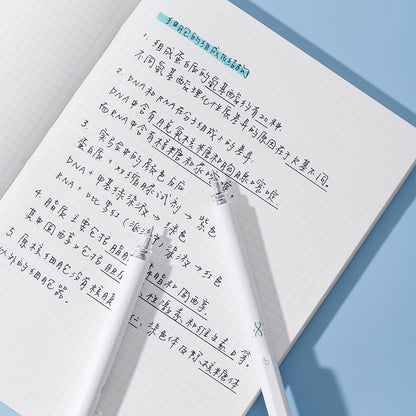 细胞的组成及结构
1. 组成蛋白质的氨基酸约有20种.
不同氨基酸理化性质差异的原因在于R基不同。
2. DNA和RNA在分子组成上的差异:
DNA中含有脱氧核糖和胸腺嘧啶
而RNA中含有核糖和尿嘧啶。
3. 实验中的颜色反应
蛋白质 + 双缩脲试剂 → 紫色
DNA + 甲基绿溶液 → 绿色
RNA + 吡罗红(派洛宁)溶液 → 红色
4. 脂质主要包括脂肪
磷脂和固醇等
其中固醇又包括胆固醇
性激素和维生素D等。
5. 原核细胞没有核膜
染色体及除核糖体
以外的细胞器。